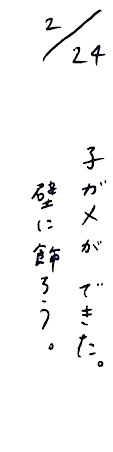 2/24
子ガメができた。
壁に飾ろう。